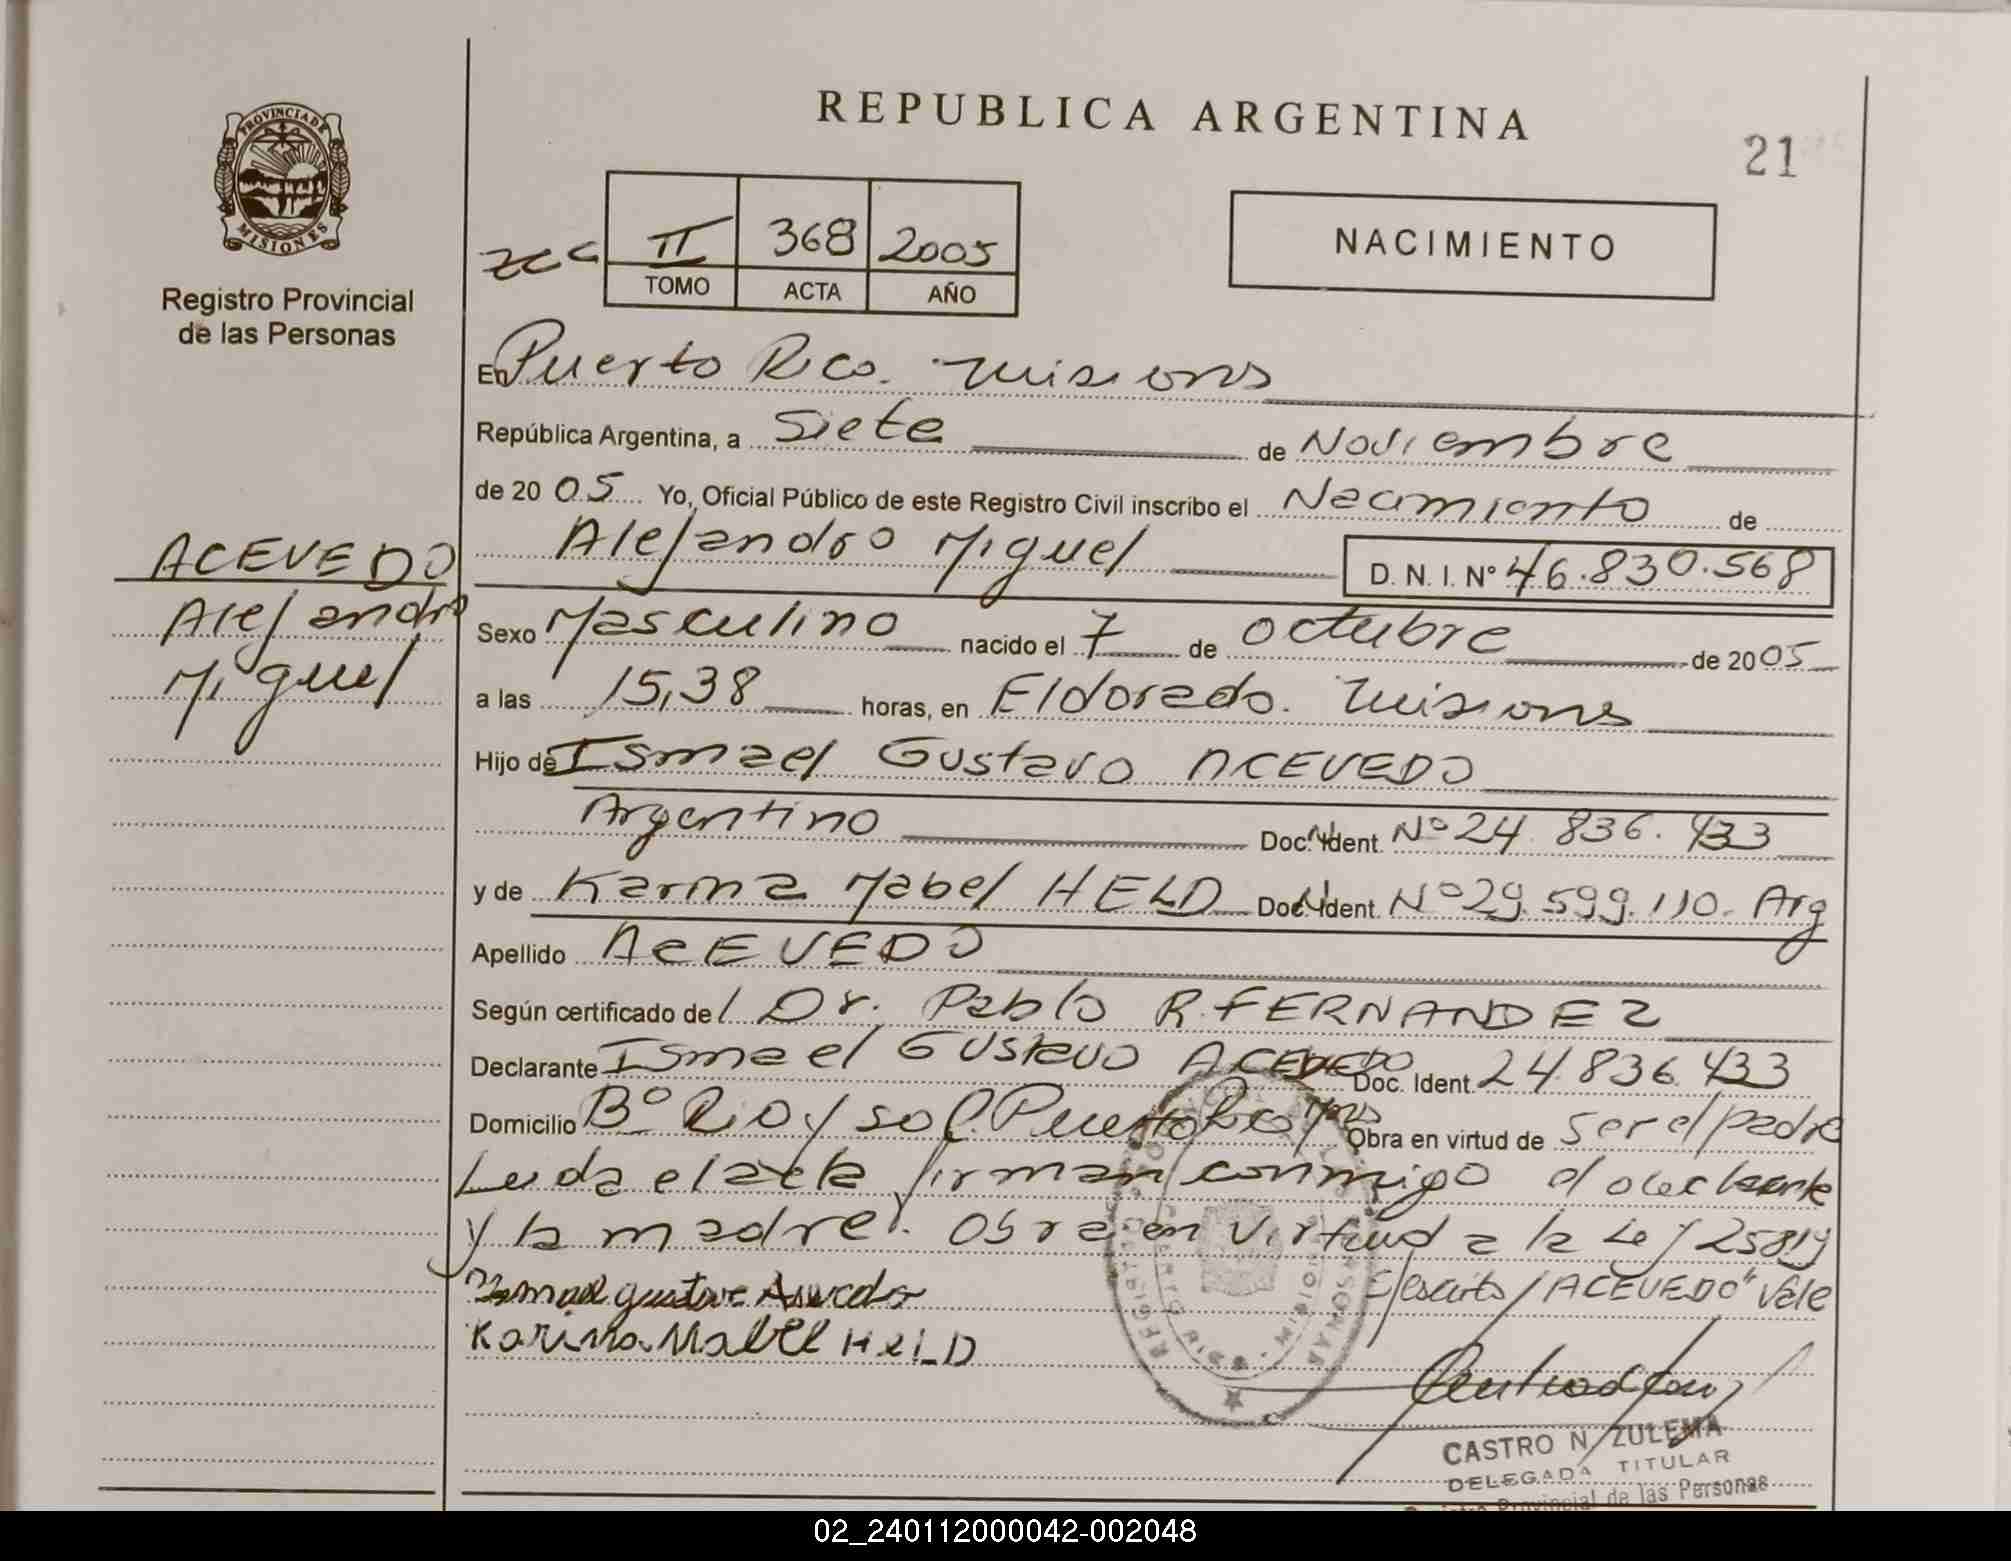 REPUBLICA ARGENTINA
21
PROVINCIA DE
MISIONES
Registro Provincial
de las Personas
II 368 2005
TOMO ACTA AÑO
NACIMIENTO
En Puerto Rico. Misiones
República Argentina, a Siete de Noviembre
de 20 05 Yo, Oficial Público de este Registro Civil inscribo el Nacimiento de
Alejandro Miguel D. N. I. Nº 46.830.568
ACEVEDO
Alejandro
Miguel
Sexo Masculino nacido el 7 de octubre de 20 05
a las 15,38 horas, en Eldorado. Misiones
Hijo de Ismael Gustavo ACEVEDO
Argentino Doc. Ident. Nº 24.836.433
y de Karina Mabel HELD Doc. Ident. Nº 29.599.110. Arg
Apellido ACEVEDO
Según certificado del Dr. Pablo R. FERNANDEZ
Declarante Ismael Gustavo ACEVEDO Doc. Ident. 24.836.433
Domicilio Bº Rio y Sol. Puerto Rico Mnes Obra en virtud de ser el padre
Leida el acta firman conmigo el declarante
y la madre. Obra en virtud a la Ley 25819
E/escrito "ACEVEDO" Vale
Ismael Gustavo Acevedo
Karina Mabel HELD
CASTRO N. ZULEMA
DELEGADA TITULAR
Registro Provincial de las Personas
02_240112000042-002048